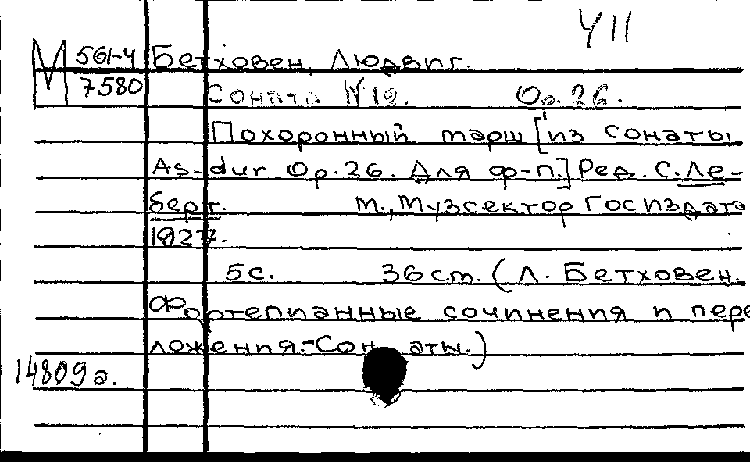 УП
М 561-4 Бетховен, Людвиг.
7580 Соната №12. Op. 26.
Похоронный марш [из сонаты
As-dur Op. 26. Для ф-п.] Ред. С. Ле-
берт. М., Музсектор Госиздата
1927.
5с. 36 см. (Л. Бетховен.
Фортепианные сочинения и пере
ложения.-Сонаты.)
14809а.